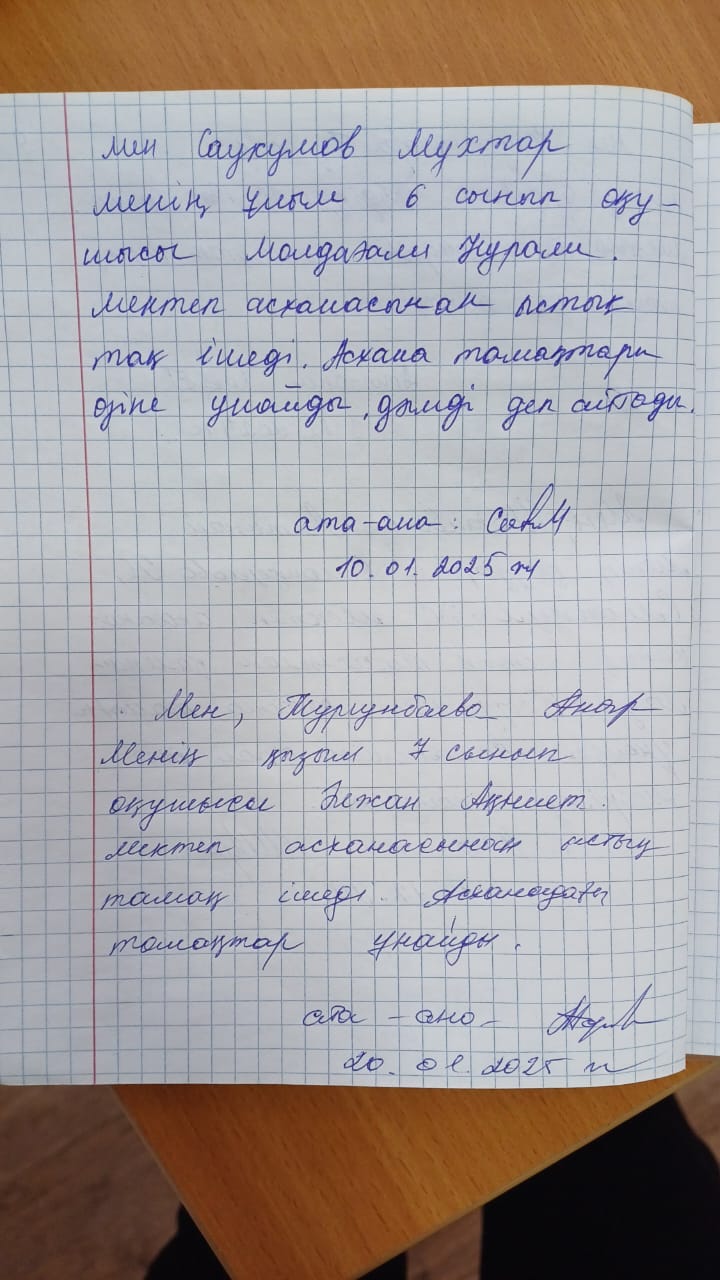 Мен Саукумов Мухтар
менің ұлым 6 сынып оқу-
шысы Молдағали Нурали.
Мектеп асханасынан ыстық
тақ ішеді. Асхана тамақтари
өзіне ұнайды, дәмді деп айтады.
ата-ана: СавМ
10.01.2025 ж
Мен, Тургунбаева Анар
Менің қызым 7 сынып
оқушысы Әлжан Ақниет.
мектеп асханасынан ыстық
тамақ ішеді. Асханадағы
тамақтар ұнайды.
ата - ана -
20.01.2025 ж